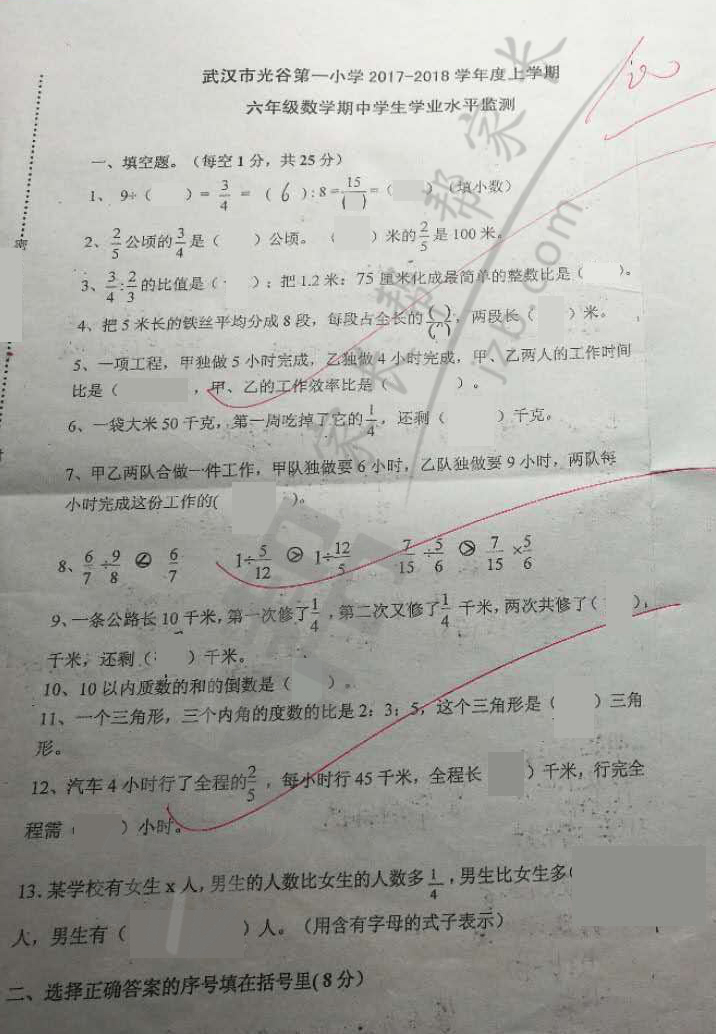 武汉市光谷第一小学 2017-2018 学年度上学期
六年级数学期中学生学业水平监测
100
一、填空题。（每空 1 分，共 25 分）
1、 9÷（ ）= 3/4 = （ 6 ）: 8 = 15/( ) =（ ）（填小数）
2、2/5公顷的3/4是（ ）公顷。（ ）米的2/5是 100 米。
3、3/4:2/3的比值是（ ）；把 1.2 米：75 厘米化成最简单的整数比是（ ）。
4、把 5 米长的铁丝平均分成 8 段，每段占全长的( )/( )，两段长（ ）米。
5、一项工程，甲独做 5 小时完成，乙独做 4 小时完成，甲、乙两人的工作时间
比是（ ，甲、乙的工作效率比是（ ）。
6、一袋大米 50 千克，第一周吃掉了它的1/4，还剩（ ）千克。
7、甲乙两队合做一件工作，甲队独做要 6 小时，乙队独做要 9 小时，两队每
小时完成这份工作的( )。
8、6/7÷9/8 < 6/7 1÷5/12 > 1÷12/5 7/15÷5/6 > 7/15×5/6
9、一条公路长 10 千米，第一次修了1/4，第二次又修了1/4千米，两次共修了（ ），
千米，还剩（ ）千米。
10、10 以内质数的和的倒数是（ ）。
11、一个三角形，三个内角的度数的比是 2：3：5，这个三角形是（ ）三角
形。
12、汽车 4 小时行了全程的2/5，每小时行 45 千米，全程长 ）千米，行完全
程需（ ）小时。
13. 某学校有女生 x 人，男生的人数比女生的人数多1/4，男生比女生多(
人，男生有（ ）人。（用含有字母的式子表示）
二、选择正确答案的序号填在括号里( 8 分）
密
帮家长
jzb.com